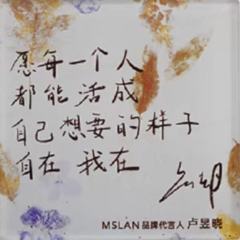 愿每一个人
都能活成
自己想要的样子
自在 我在
MSLAN 品牌代言人 卢昱晓